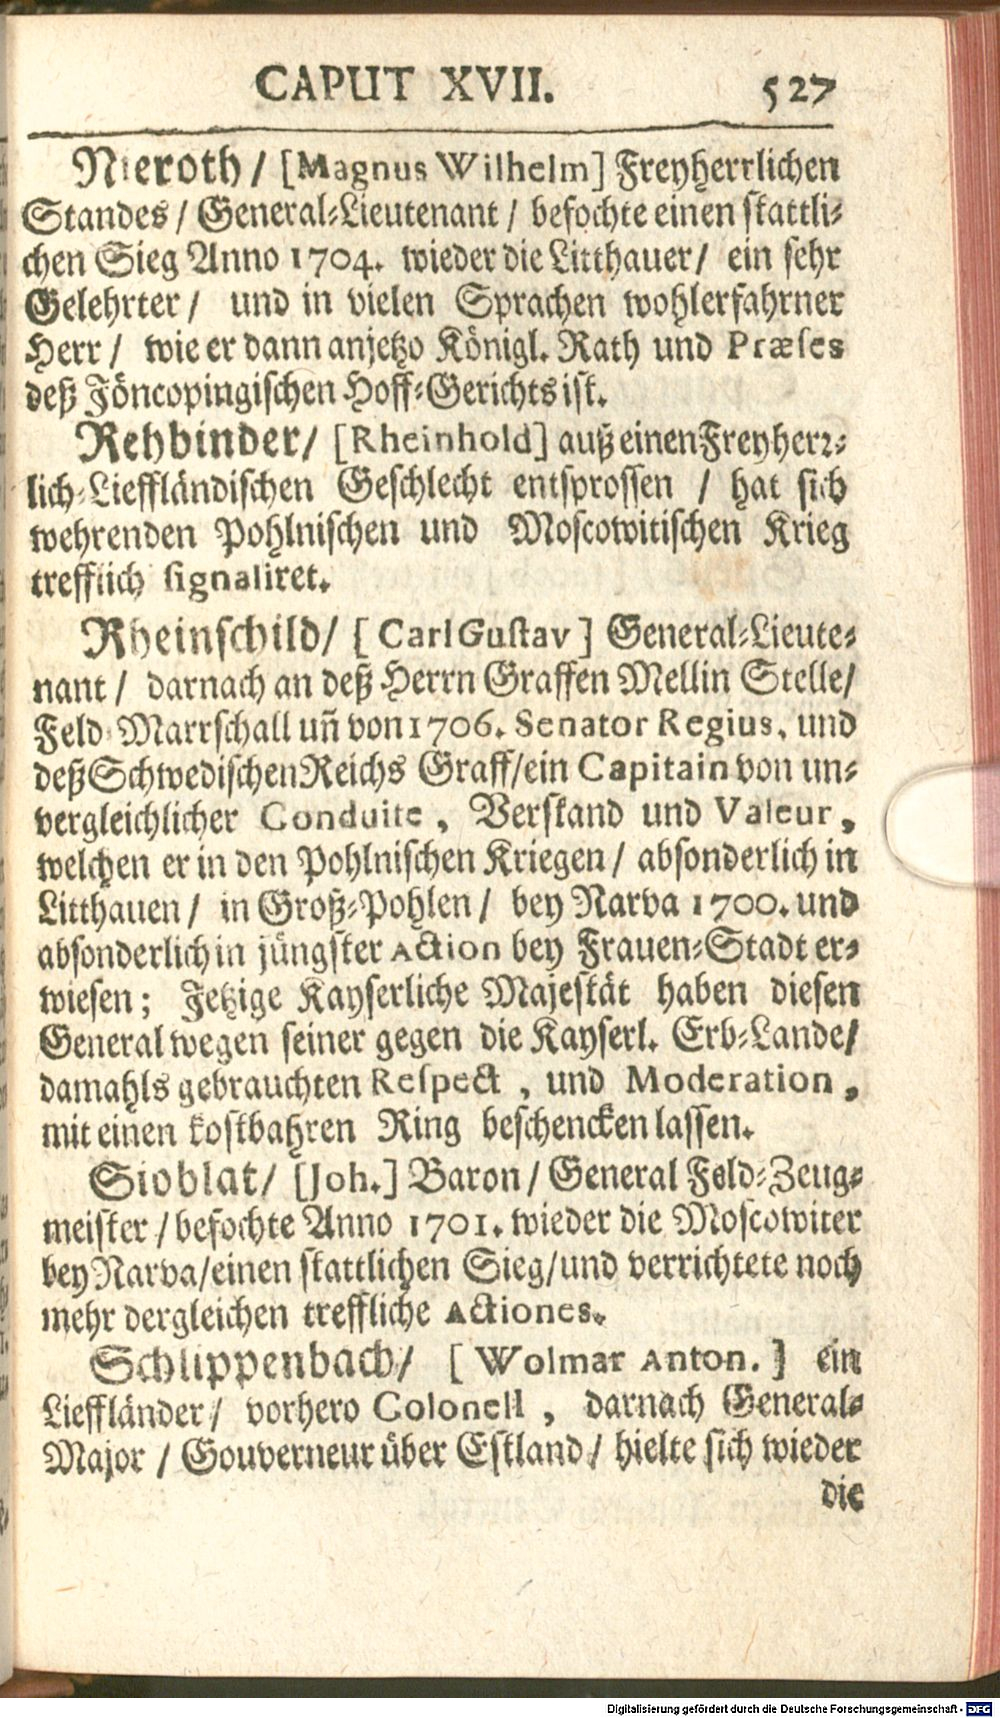 CAPUT XVII. 527
Nieroth / [Magnus Wilhelm] Freyherrlichen
Standes / General-Lieutenant / befochte einen stattli-
chen Sieg Anno 1704. wieder die Litthauer / ein sehr
Gelehrter / und in vielen Sprachen wohlerfahrner
Herr / wie er dann anjetzo Königl. Rath und Præses
deß Jöncopingischen Hoff-Gerichts ist.
Rehbinder / [Rheinhold] auß einen Freyherr-
lich-Liefländischen Geschlecht entsprossen / hat sich
wehrenden Pohlnischen und Moscowitischen Krieg
trefflich signaliret.
Rheinschild / [Carl Gustav] General-Lieute-
nant / darnach an deß Herrn Graffen Mellin Stelle /
Feld-Marrschall uñ von 1706. Senator Regius, und
deß Schwedischen Reichs Graff / ein Capitain von un-
vergleichlicher Conduite, Verstand und Valeur,
welchen er in den Pohlnischen Kriegen / absonderlich in
Litthauen / in Groß-Pohlen / bey Narva 1700. und
absonderlich in jüngster Action bey Frauen-Stadt er-
wiesen; Jetzige Kayserliche Majestät haben diesen
General wegen seiner gegen die Kayserl. Erb-Lande /
damahls gebrauchten Respect, und Moderation,
mit einen kostbahren Ring beschencken lassen.
Sioblat / [Joh.] Baron / General Feld-Zeug-
meister / befochte Anno 1701. wieder die Moscowiter
bey Narva / einen stattlichen Sieg / und verrichtete noch
mehr dergleichen treffliche Actiones.
Schlippenbach / [Wolmar Anton.] ein
Liefländer / vorhero Colonell, darnach General-
Major / Gouverneur über Estland / hielte sich wieder
die
Digitalisierung gefördert durch die Deutsche Forschungsgemeinschaft - DFG